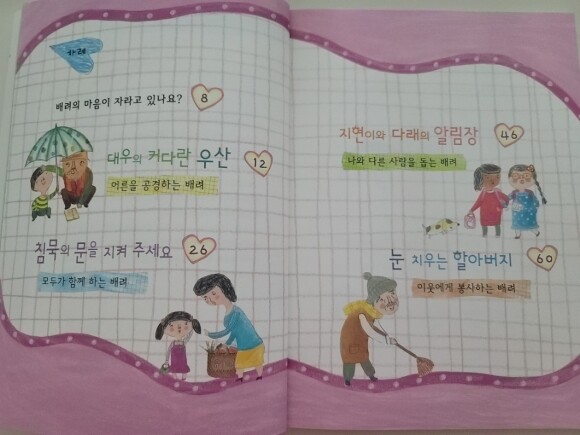 차례
배려의 마음이 자라고 있나요? 8
대우의 커다란 우산 12
어른을 공경하는 배려
침묵의 문을 지켜 주세요 26
모두가 함께 하는 배려
지현이와 다래의 알림장 46
나와 다른 사람을 돕는 배려
눈 치우는 할아버지 60
이웃에게 봉사하는 배려